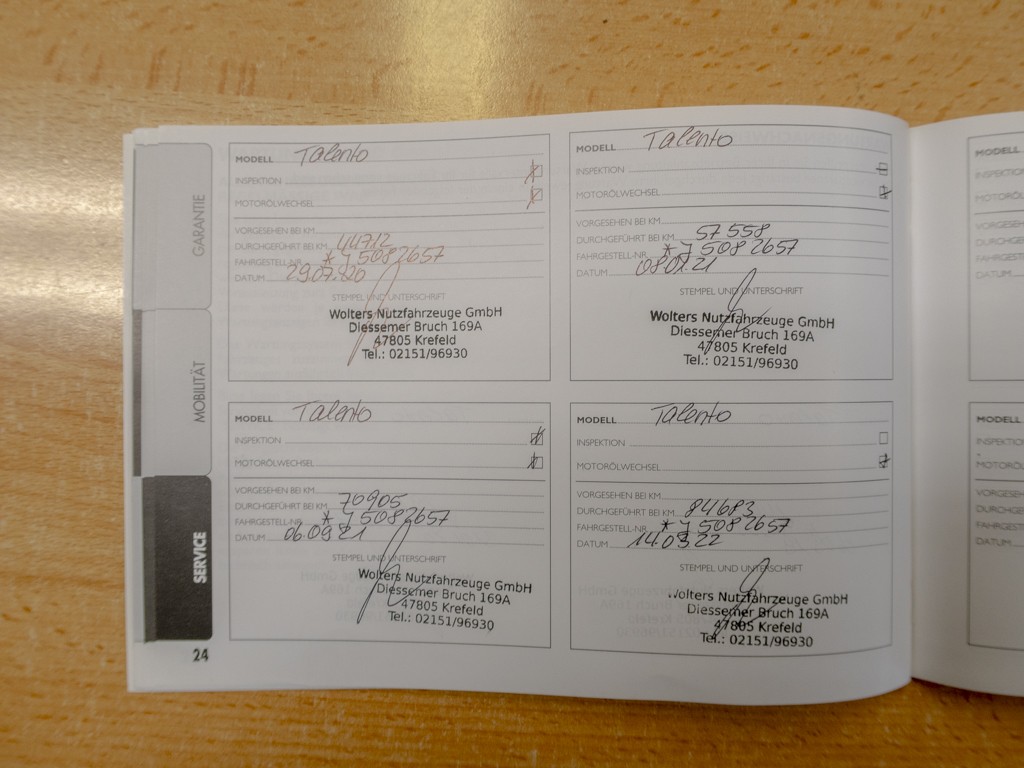 GARANTIE
MOBILITÄT
SERVICE
24
MODELL Talento
INSPEKTION
MOTORÖLWECHSEL
VORGESEHEN BEI KM
DURCHGEFÜHRT BEI KM 44712
FAHRGESTELL-NR. * J5082657
DATUM 29.07.20
STEMPEL UND UNTERSCHRIFT
Wolters Nutzfahrzeuge GmbH
Diessemer Bruch 169A
47805 Krefeld
Tel.: 02151/96930
MODELL Talento
INSPEKTION
MOTORÖLWECHSEL
VORGESEHEN BEI KM
DURCHGEFÜHRT BEI KM 57558
FAHRGESTELL-NR. * J5082657
DATUM
STEMPEL UND UNTERSCHRIFT
Wolters Nutzfahrzeuge GmbH
Diessemer Bruch 169A
47805 Krefeld
Tel.: 02151/96930
MODELL Talento
INSPEKTION
MOTORÖLWECHSEL
VORGESEHEN BEI KM
DURCHGEFÜHRT BEI KM 70905
FAHRGESTELL-NR. * J5082657
DATUM 06.09.21
STEMPEL UND UNTERSCHRIFT
Wolters Nutzfahrzeuge GmbH
Diessemer Bruch 169A
47805 Krefeld
Tel.: 02151/96930
MODELL Talento
INSPEKTION
MOTORÖLWECHSEL
VORGESEHEN BEI KM
DURCHGEFÜHRT BEI KM 84683
FAHRGESTELL-NR. * J5082657
DATUM 14.03.22
STEMPEL UND UNTERSCHRIFT
Wolters Nutzfahrzeuge GmbH
Diessemer Bruch 169A
47805 Krefeld
Tel.: 02151/96930
MODELL
MODELL